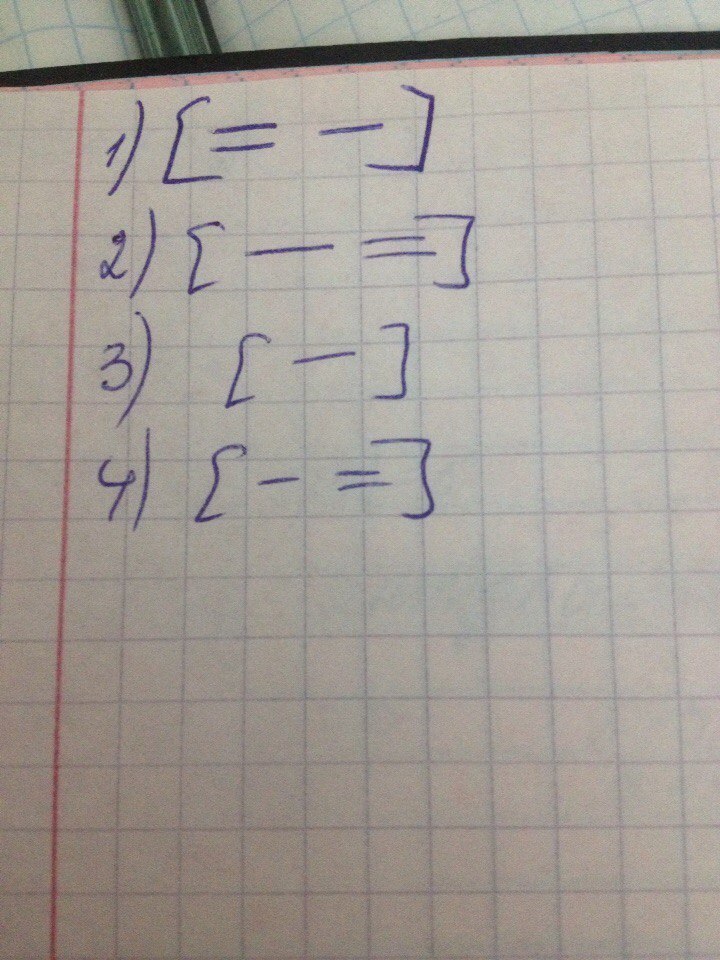 1) [= —]
2) [— =]
3) [—]
4) [- =]